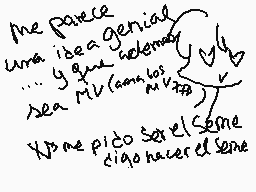 me parece
una idea genial
.... y que además
sea MU (ama los
MU
Yo me pido ser el seme
digo hacer el seme